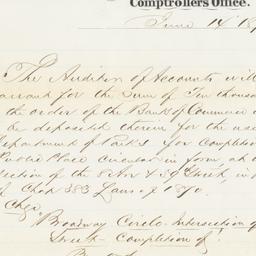 Comptrollers Office.
June 14 18
The Auditor of Accounts will
arrant for the Sum of Ten thousan
the order of the Bank of Commerce in
be deposited therein for the use
Department of Parks for Completion
Public Place circular in form, at
ection of the 8 Av & 59 Street, in
of Chap 383 Laws of 1870.
Chge
"Broadway Circle-Intersection of
Street - Completion of"